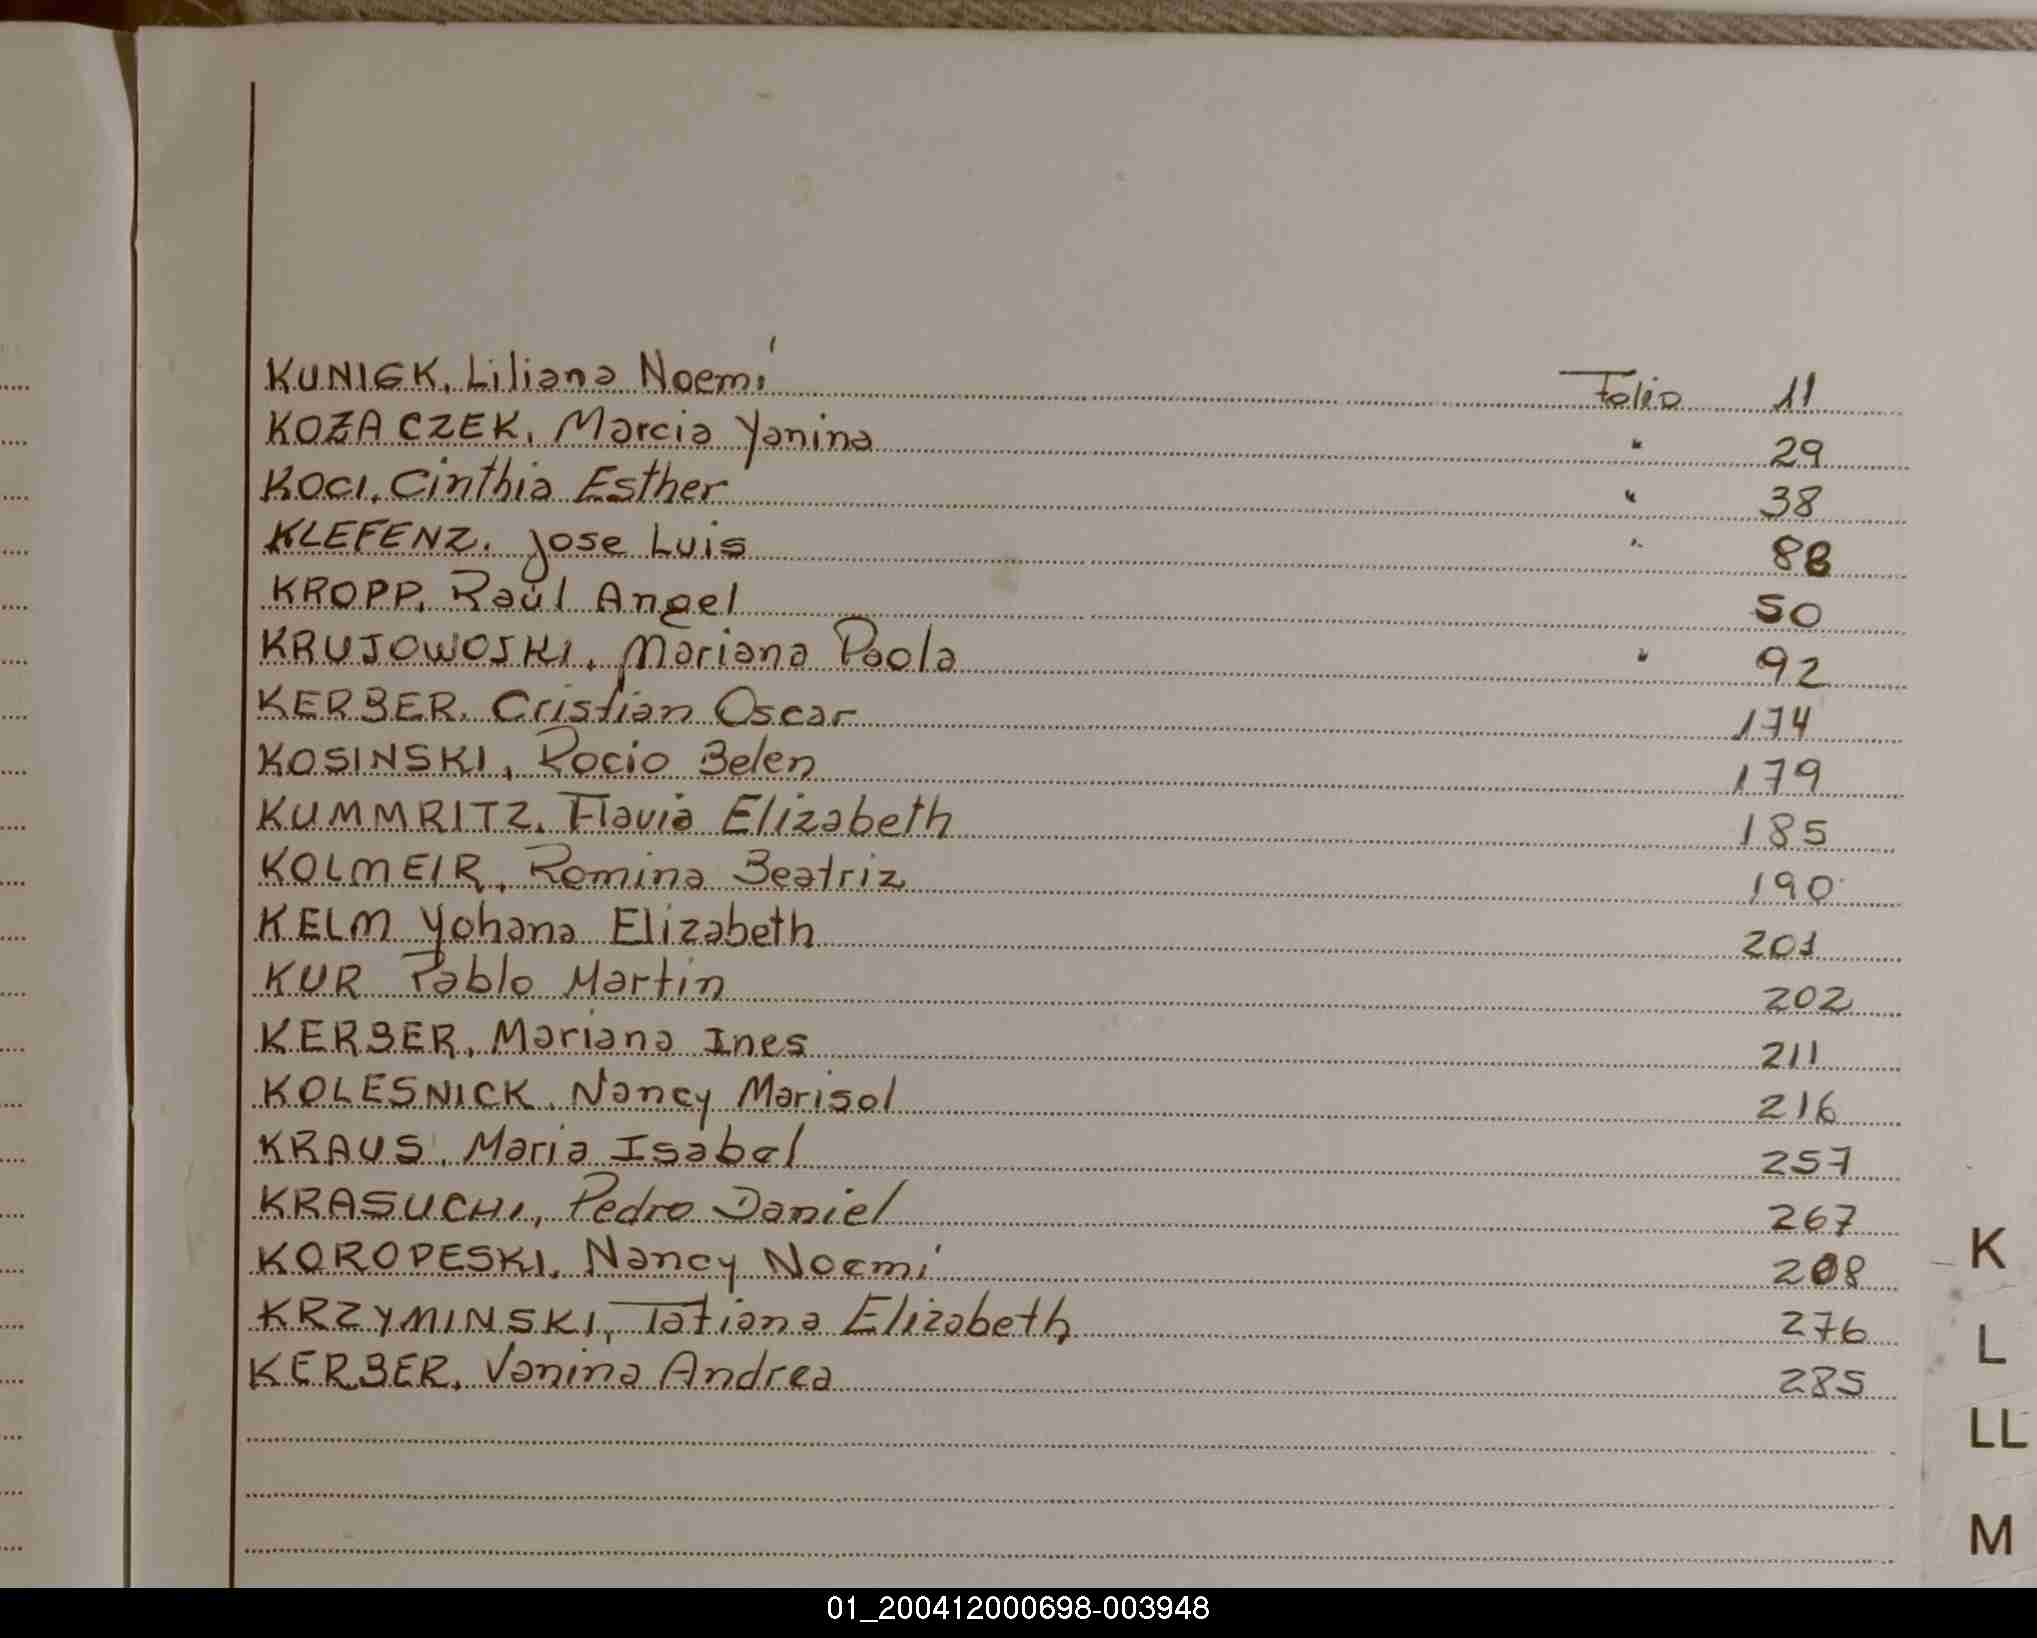 KUNIGK, Liliana Noemí Folio 11
KOZACZEK, Marcia Yanina " 29
KOCI, Cinthia Esther " 38
KLEFENZ, Jose Luis " 88
KROPP, Raúl Angel 50
KRUJOWOSKI, Mariana Paola " 92
KERBER, Cristian Oscar 174
KOSINSKI, Rocio Belen 179
KUMMRITZ, Flavia Elizabeth 185
KOLMEIR, Romina Beatriz 190
KELM Yohana Elizabeth 201
KUR Pablo Martin 202
KERBER, Mariana Ines 211
KOLESNICK, Nancy Marisol 216
KRAUS, Maria Isabel 257
KRASUCHI, Pedro Daniel 267
KOROPESKI, Nancy Noemí
KRZYMINSKI, Tatiana Elizabeth 276
KERBER, Vanina Andrea 285
K
L
LL
M
01_200412000698-003948